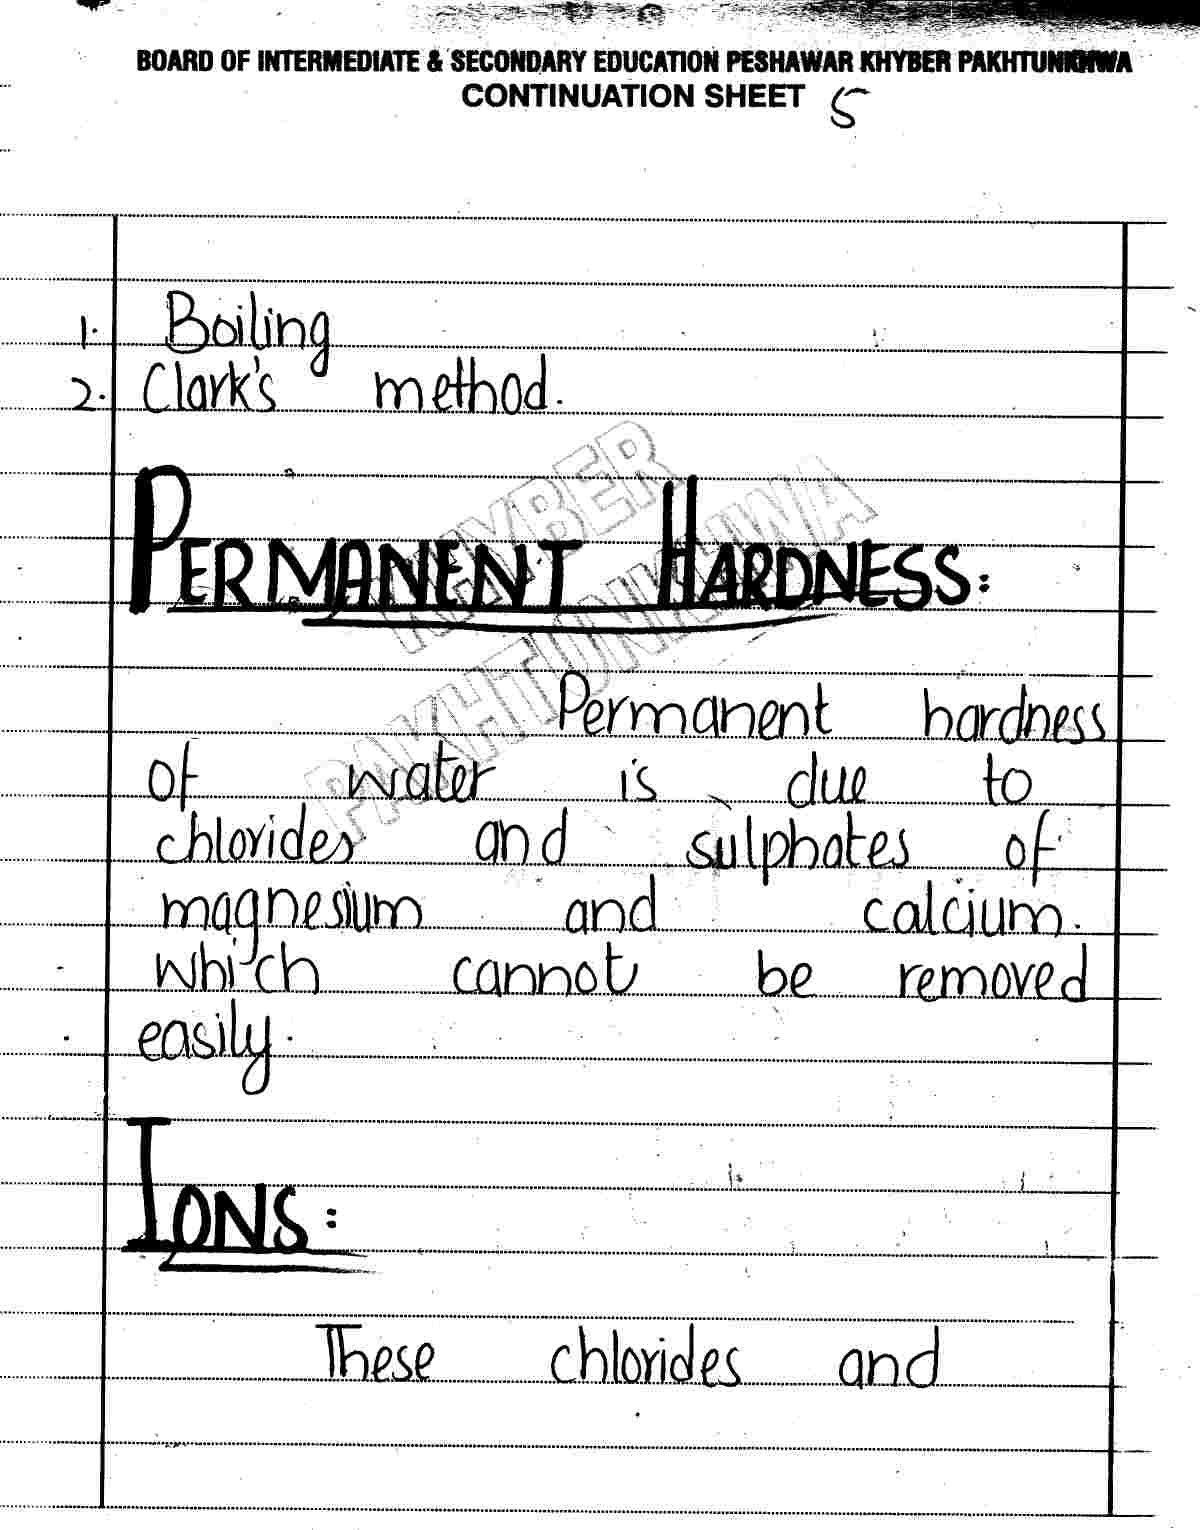 BOARD OF INTERMEDIATE & SECONDARY EDUCATION PESHAWAR KHYBER PAKHTUNKHWA
CONTINUATION SHEET 5
1. Boiling
2. Clark's method.
KHYBER
PAKHTUNKHWA
PERMANENT HARDNESS:
Permanent hardness
of water is due to
chlorides and sulphates of
magnesium and calcium.
which cannot be removed
easily.
IONS:
These chlorides and